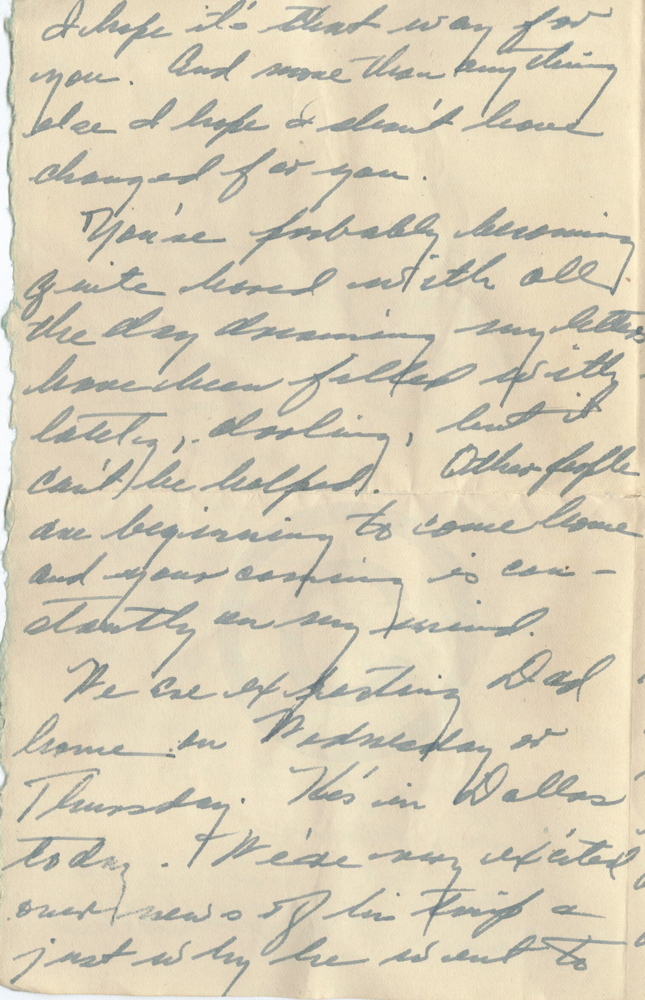 I hope it's that way for
you. And more than anything
else I hope I shan't have
changed for you.
You're probably becoming
quite bored with all
the day dreaming my letters
have been filled with
lately, darling, but it
can't be helped. Other people
are beginning to come home
and your coming is con-
stantly on my mind.
We are expecting Dad
home on Wednesday or
Thursday. He's in Dallas
today. We're very excited
over news of his trip &
just why he went to